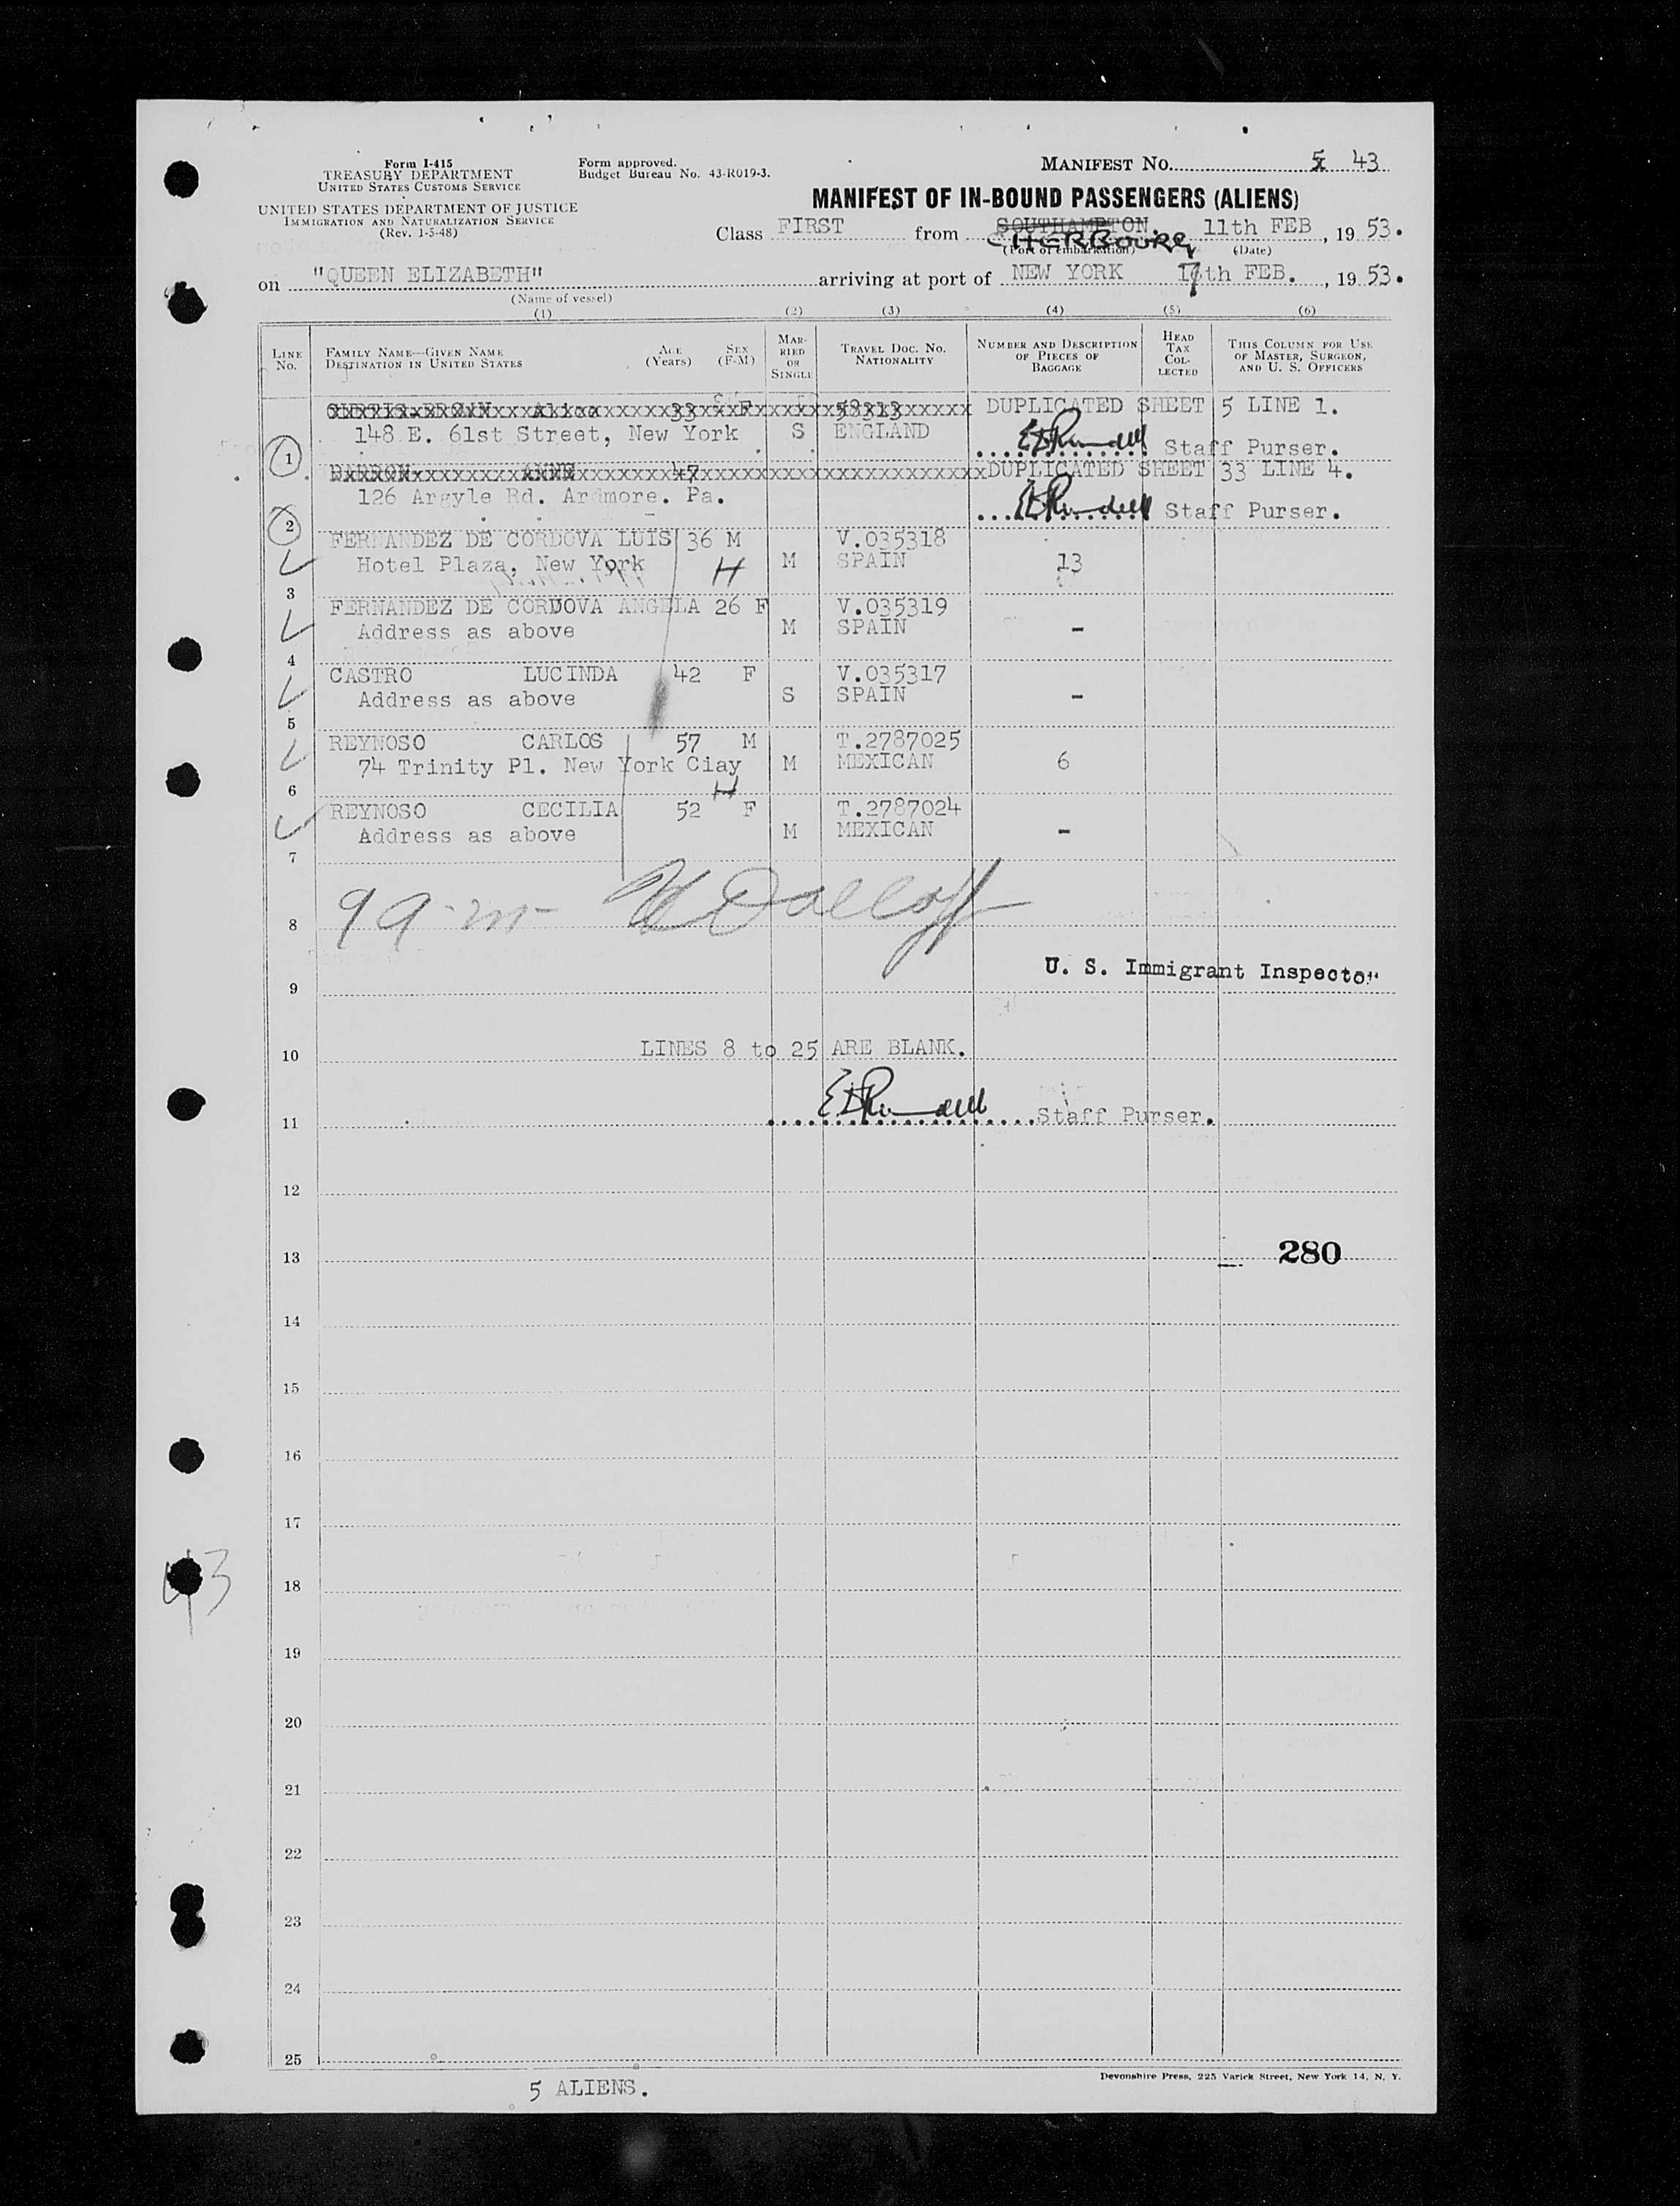 Form I-415
TREASURY DEPARTMENT
UNITED STATES CUSTOMS SERVICE
UNITED STATES DEPARTMENT OF JUSTICE
IMMIGRATION AND NATURALIZATION SERVICE
(Rev. 1-5-48)
Form approved.
Budget Bureau No. 43-R019-3.
MANIFEST NO. 5 43
MANIFEST OF IN-BOUND PASSENGERS (ALIENS)
Class FIRST from SOUTHAMPTON. CHERBOURG 11th FEB, 1953.
(Port of embarkation) (Date)
on "QUEEN ELIZABETH" arriving at port of NEW YORK 17th FEB., 1953.
(Name of vessel)
(1) (2) (3) (4) (5) (6)
LINE NO. FAMILY NAME—GIVEN NAME DESTINATION IN UNITED STATES AGE (Years) SEX (F-M) MARRIED OR SINGLE TRAVEL DOC. NO. NATIONALITY NUMBER AND DESCRIPTION OF PIECES OF BAGGAGE HEAD TAX COLLECTED THIS COLUMN FOR USE OF MASTER, SURGEON, AND U. S. OFFICERS
CURTIS-BROWN Alice 33 F 58313 DUPLICATED SHEET 5 LINE 1.
148 E. 61st Street, New York S ENGLAND
1 Staff Purser.
BARRON ANNE 47 DUPLICATED SHEET 33 LINE 4.
126 Argyle Rd. Ardmore. Pa.
2 Staff Purser.
FERNANDEZ DE CORDOVA LUIS 36 M V.035318
Hotel Plaza, New York H M SPAIN 13
3
FERNANDEZ DE CORDOVA ANGELA 26 F V.035319
Address as above M SPAIN -
4
CASTRO LUCINDA 42 F V.035317
Address as above S SPAIN -
5
REYNOSO CARLOS 57 M T.2787025
74 Trinity Pl. New York Ciay M MEXICAN 6
6 H
REYNOSO CECILIA 52 F T.2787024
Address as above M MEXICAN -
7
8 9 a-m
U. S. Immigrant Inspector
9
10 LINES 8 to 25 ARE BLANK.
11 Staff Purser.
12
13 280
14
15
16
17
18
43
19
20
21
22
23
24
25
Devonshire Press, 225 Varick Street, New York 14, N. Y.
5 ALIENS.